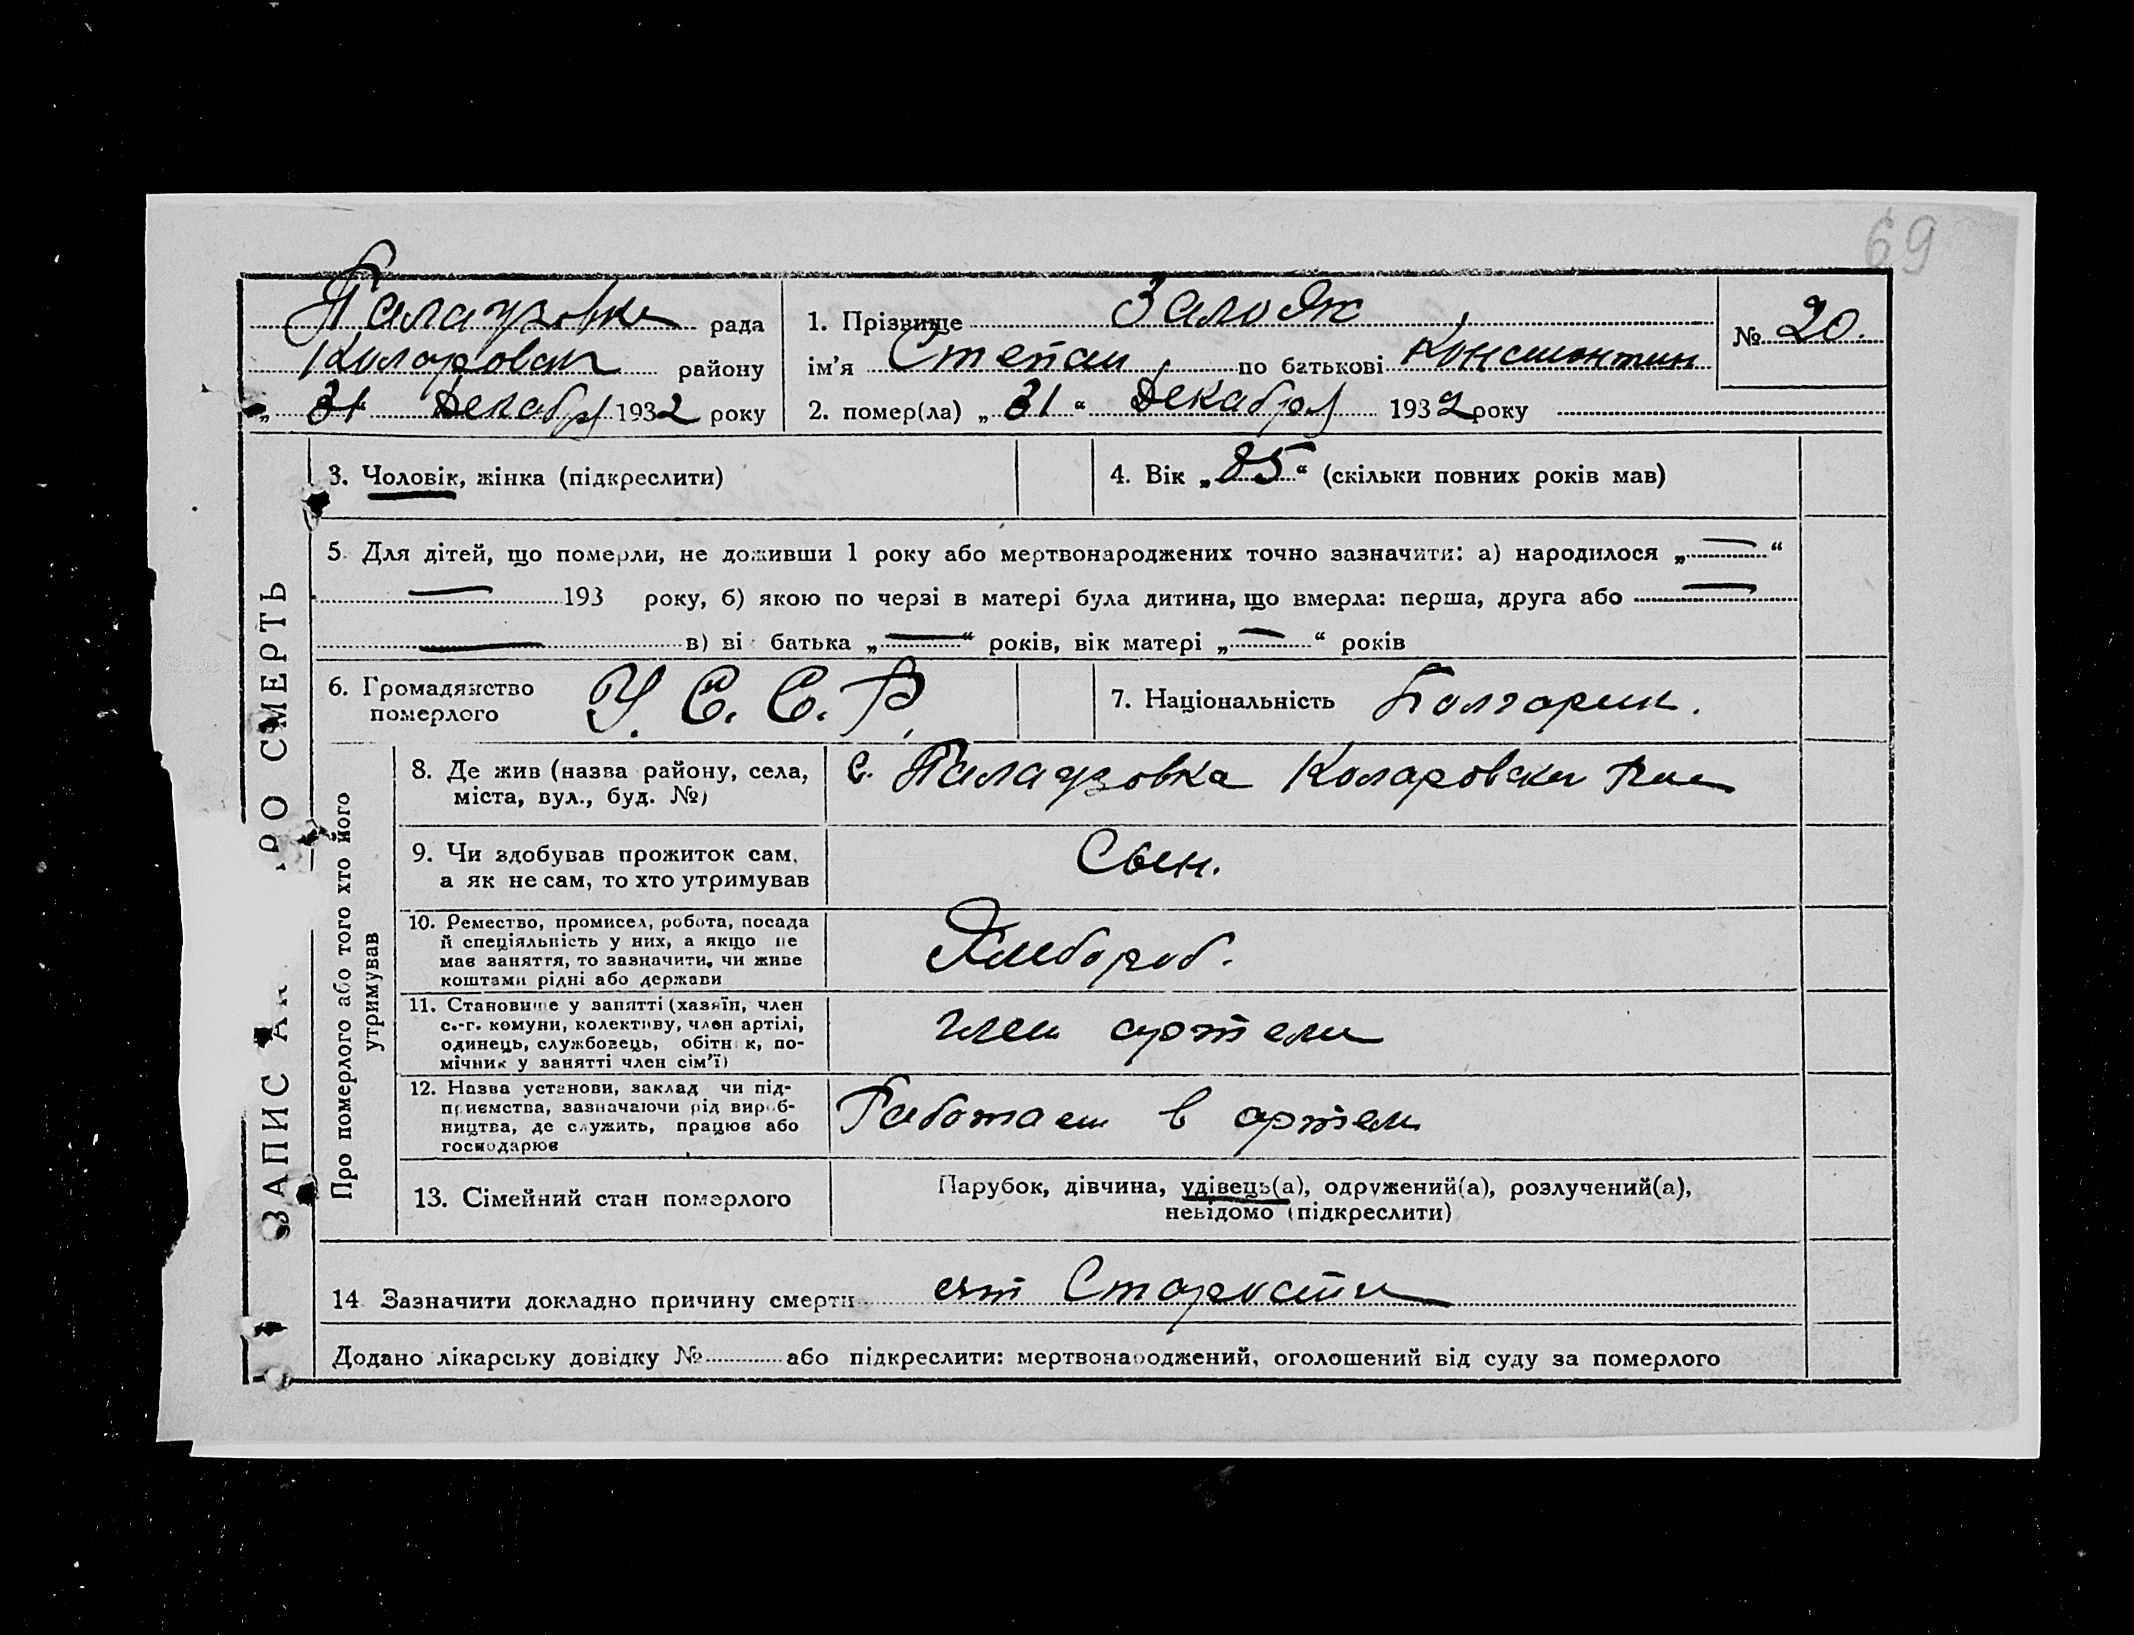 69
Палаузовка рада
Коларовск району
„ 31 Декабря 1932 року
1. Прізвище Залож
ім’я Степан по батькові Констонтин
2. помер(ла) „ 31 “ Декабря 1932 року
№ 20.
ЗАПИС РО СМЕРТЬ
3. Чоловік, жінка (підкреслити)
4. Вік „ 85 “ (скільки повних років мав)
5. Для дітей, що померли, не доживши 1 року або мертвонароджених точно зазначити: а) народилося „ — “
— 193 року, б) якою по черзі в матері була дитина, що вмерла: перша, друга або —
— в) ві батька „ — “ років, вік матері „ — “ років
6. Громадянство
померлого
У. С. С. Р.
7. Національність Болгарин.
Про померлого або того хто його
утримував
8. Де жив (назва району, села,
міста, вул., буд. №)
с. Палаузовка Коларовски
9. Чи здобував прожиток сам,
а як не сам, то хто утримував
Сын.
10. Ремество, промисел, робота, посада
й спеціяльність у них, а якщо не
має заняття, то зазначити, чи живе
коштами рідні або держави
Хлебороб.
11. Становище у занятті (хазяїн, член
с.-г. комуни, колективу, член артілі,
одинець, службовець, обітн к, по-
мічник у занятті член сім’ї)
член артели
12. Назва установи, заклад чи під-
приємства, зазначаючи рід вироб-
ництва, де служить, працює або
господарює
Работает в артели
13. Сімейний стан померлого
Парубок, дівчина, удівець(а), одружений(а), розлучений(а),
невідомо (підкреслити)
14 Зазначити докладно причину смерти от Старости
Додано лікарську довідку № або підкреслити: мертвонароджений, оголошений від суду за померлого